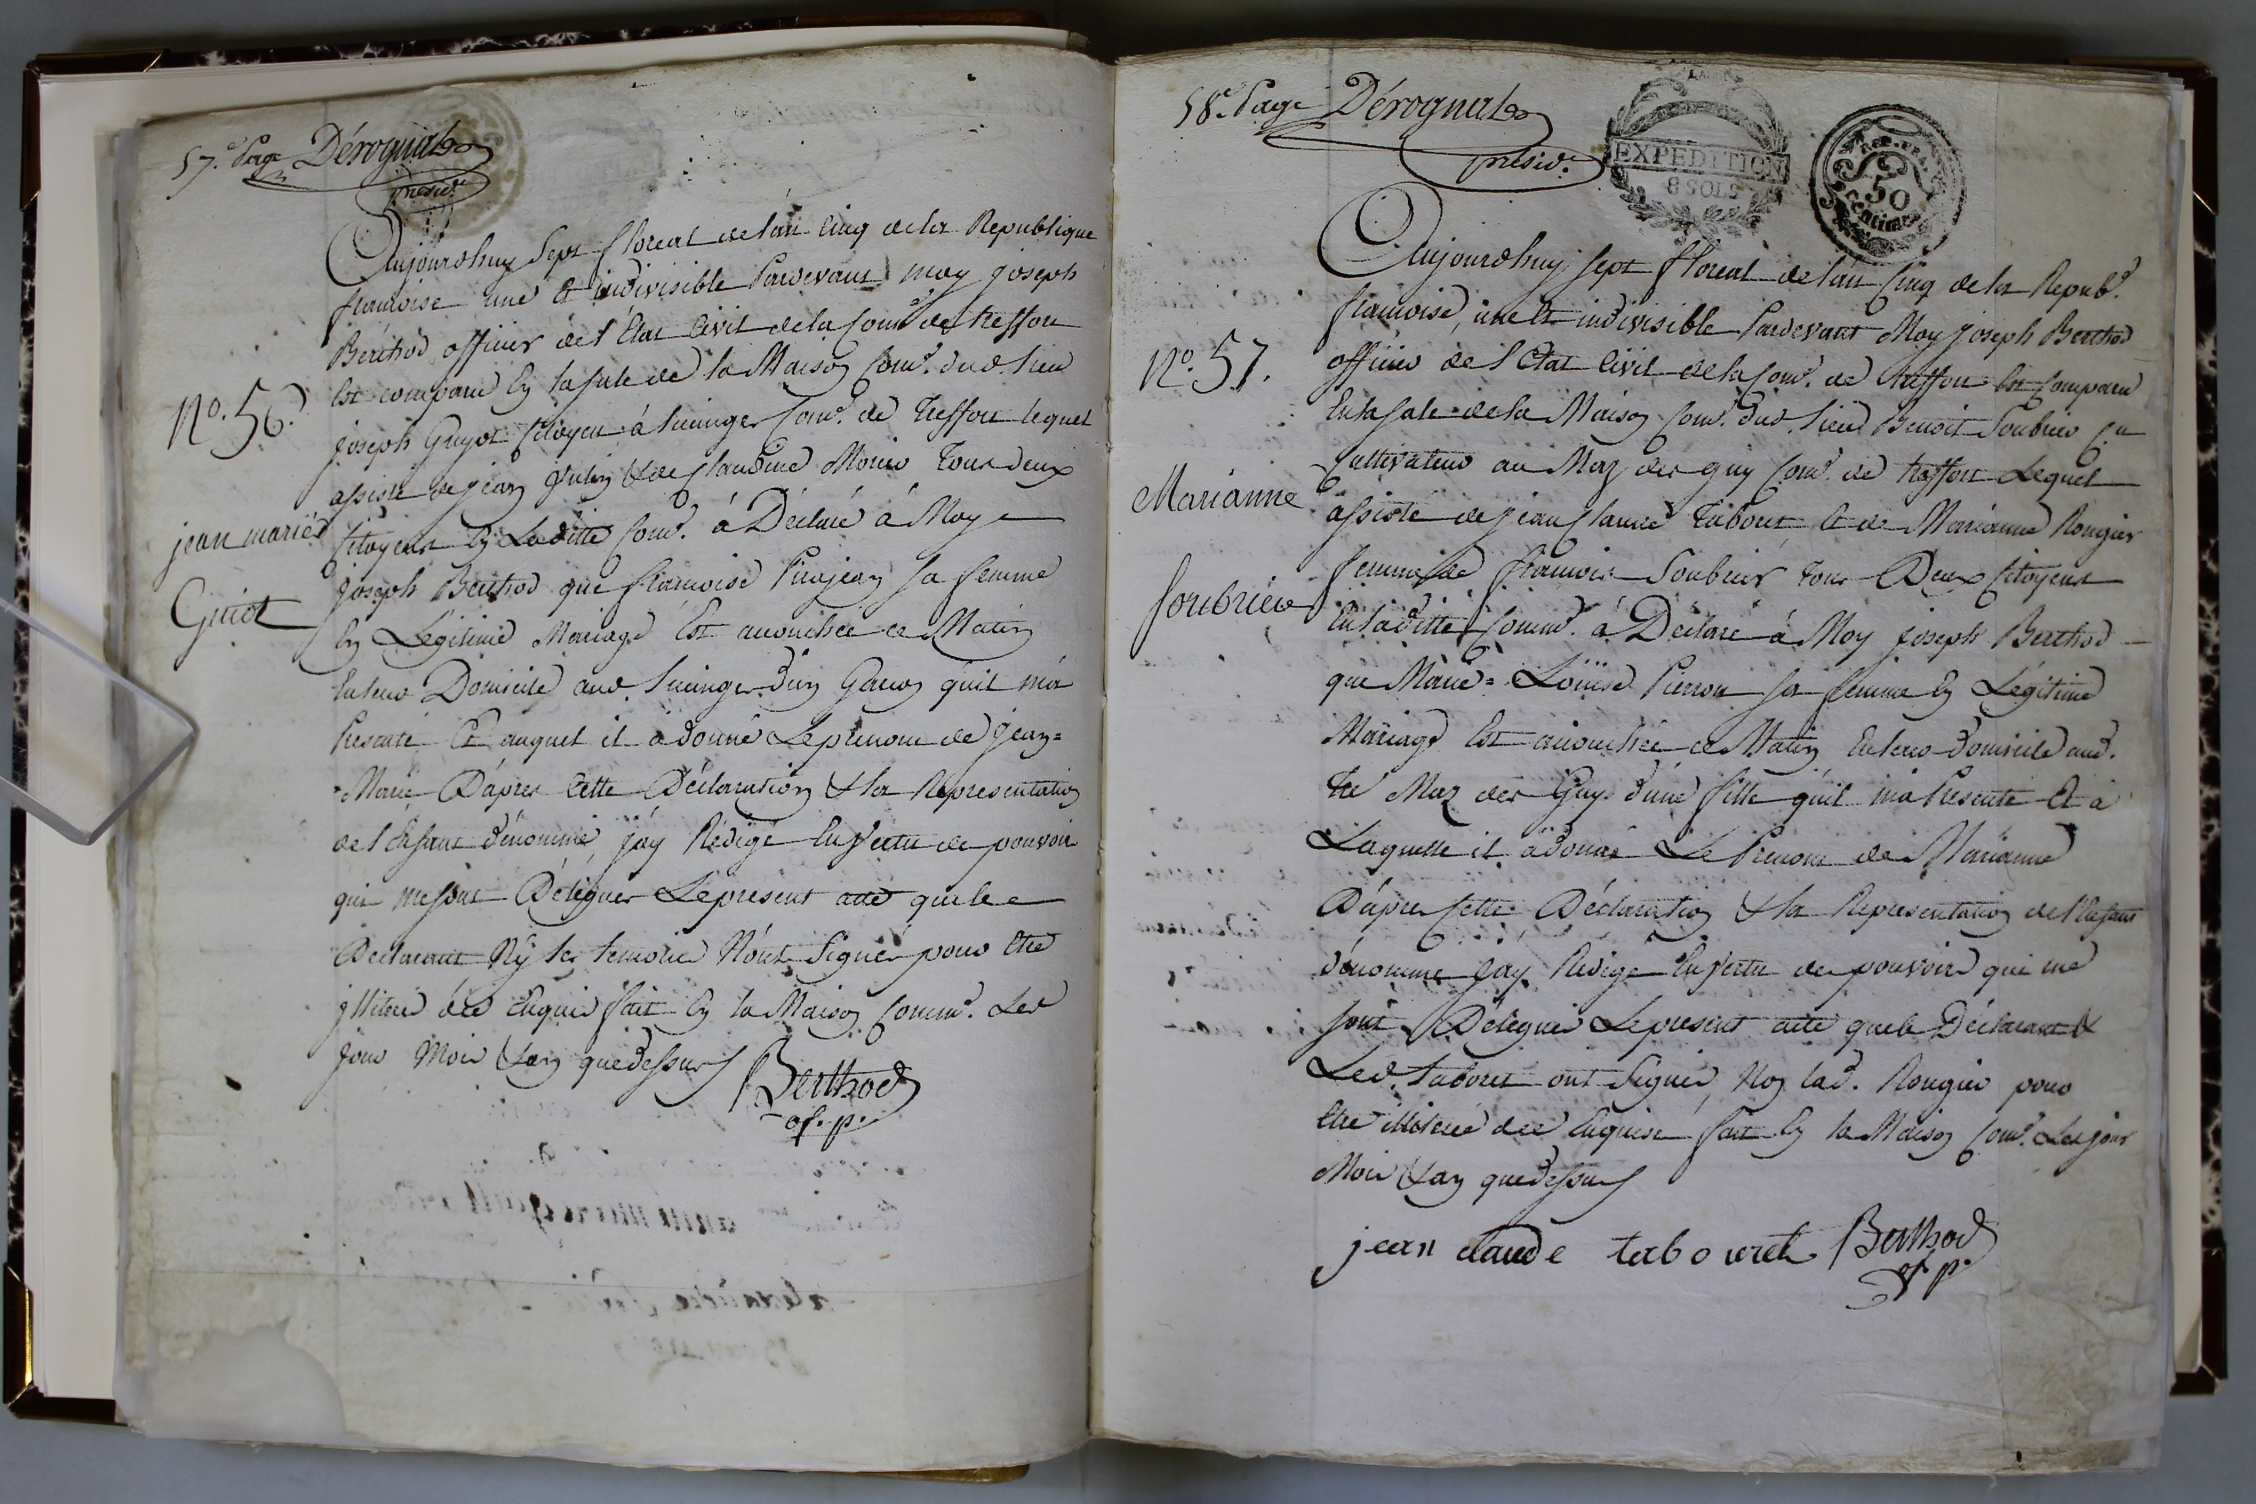 57.e Page Dérognat
présid.t
Aujourdhuy Sept floreal de l'an Cinq de la Republique
francoise une et indivisible Pardevant moy joseph
Berthod officier de l'Etat Civil de la Com.e de treffort
Est comparu En la sale de la Maison Com.e dud. lieu
joseph Guyot Citoyen à Lucinge Com.e de Treffort lequel
assisté de jean & de Claudine Tous deux
Citoyens En Laditte Com.e à Déclaré à Moy
joseph Berthod que francoise Pirajean sa femme
En Légitime Mariage Est accouchée ce Matin
En leur Domicile aud. Lucinge d'un Garcon qu'il m'a
Presenté Et auquel il a donné Le prenom de jean=
=Marie D'après Cette Déclaration & la Representation
de l'Enfant dénommé, j'ay Rédigé En Vertu des pouvoirs
qui me sont Délégués Le present acte que le
Declarant Ny les temoins N'ont Signés pour être
jllitéré dee Enquis fait En la Maison Comm.e Les
jour Mois & an que dessus
Berthod
of. p.
No. 56.
jean marie
Guiot
58.e Page Dérognat
présid.t
EXPEDITION
8 SOLS
REP. FRA.
50
centimes
Aujourdhuy sept floreal de l'an Cinq de la Repub.e
francoise, une Et indivisible Pardevant Moy joseph Berthod
officier de l'Etat Civil de la Com.e de treffort Est Comparu
En la sale de la Maison Com.e dud. lieu Benoit Soubrier
Cultivateur au Maz des guy Com.e de treffort Lequel
assisté de jean Claude Tabouret, Et de Marianne Rougier
femme de francois Soubrier Tous Deux Citoyens
En laditte Comm.e à Déclaré à Moy joseph Berthod
que Marie= Loüise Pierron sa femme En Légitime
Mariage Est accouchée ce Matin En leur domicile aud.
Maz des Guy d'une fille qu'il m'a Presenté Et à
Laquelle il a donné Le Prenom de Marianne
D'après Cette Déclaration & la Representation de l'Enfant
dénommé j'ay Rédigé En Vertu des pouvoirs qui me
sont Délégués Le present acte que le Déclarant &
Led. Tabouret ont Signés, Non lad. Rougier pour
être illitéré dee Enquise fait En la Maison Com.e Les jour
Mois & an que dessus
jean claude tabouret Berthod
of. p.
No. 57.
Marianne
Soubrier